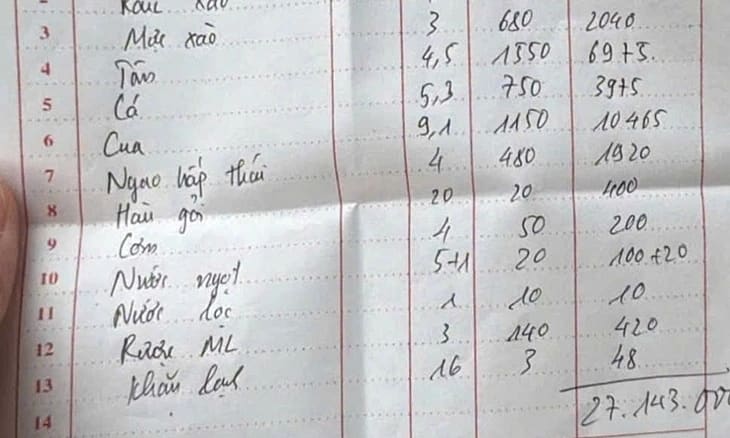 xào
3 Mực xào 3 680 2040
4 Tôm 4,5 1550 6975
5 Cá 5,3 750 3975
6 Cua 9,1 1150 10465
7 Ngao hấp thái 4 480 1920
8 Hàu gỏi 20 20 400
9 Cơm 4 50 200
10 Nước ngọt 5+1 20 100+20
11 Nước lọc 1 10 10
12 Rượu ML 3 140 420
13 Khăn lạnh 16 3 48
14 27.143.000